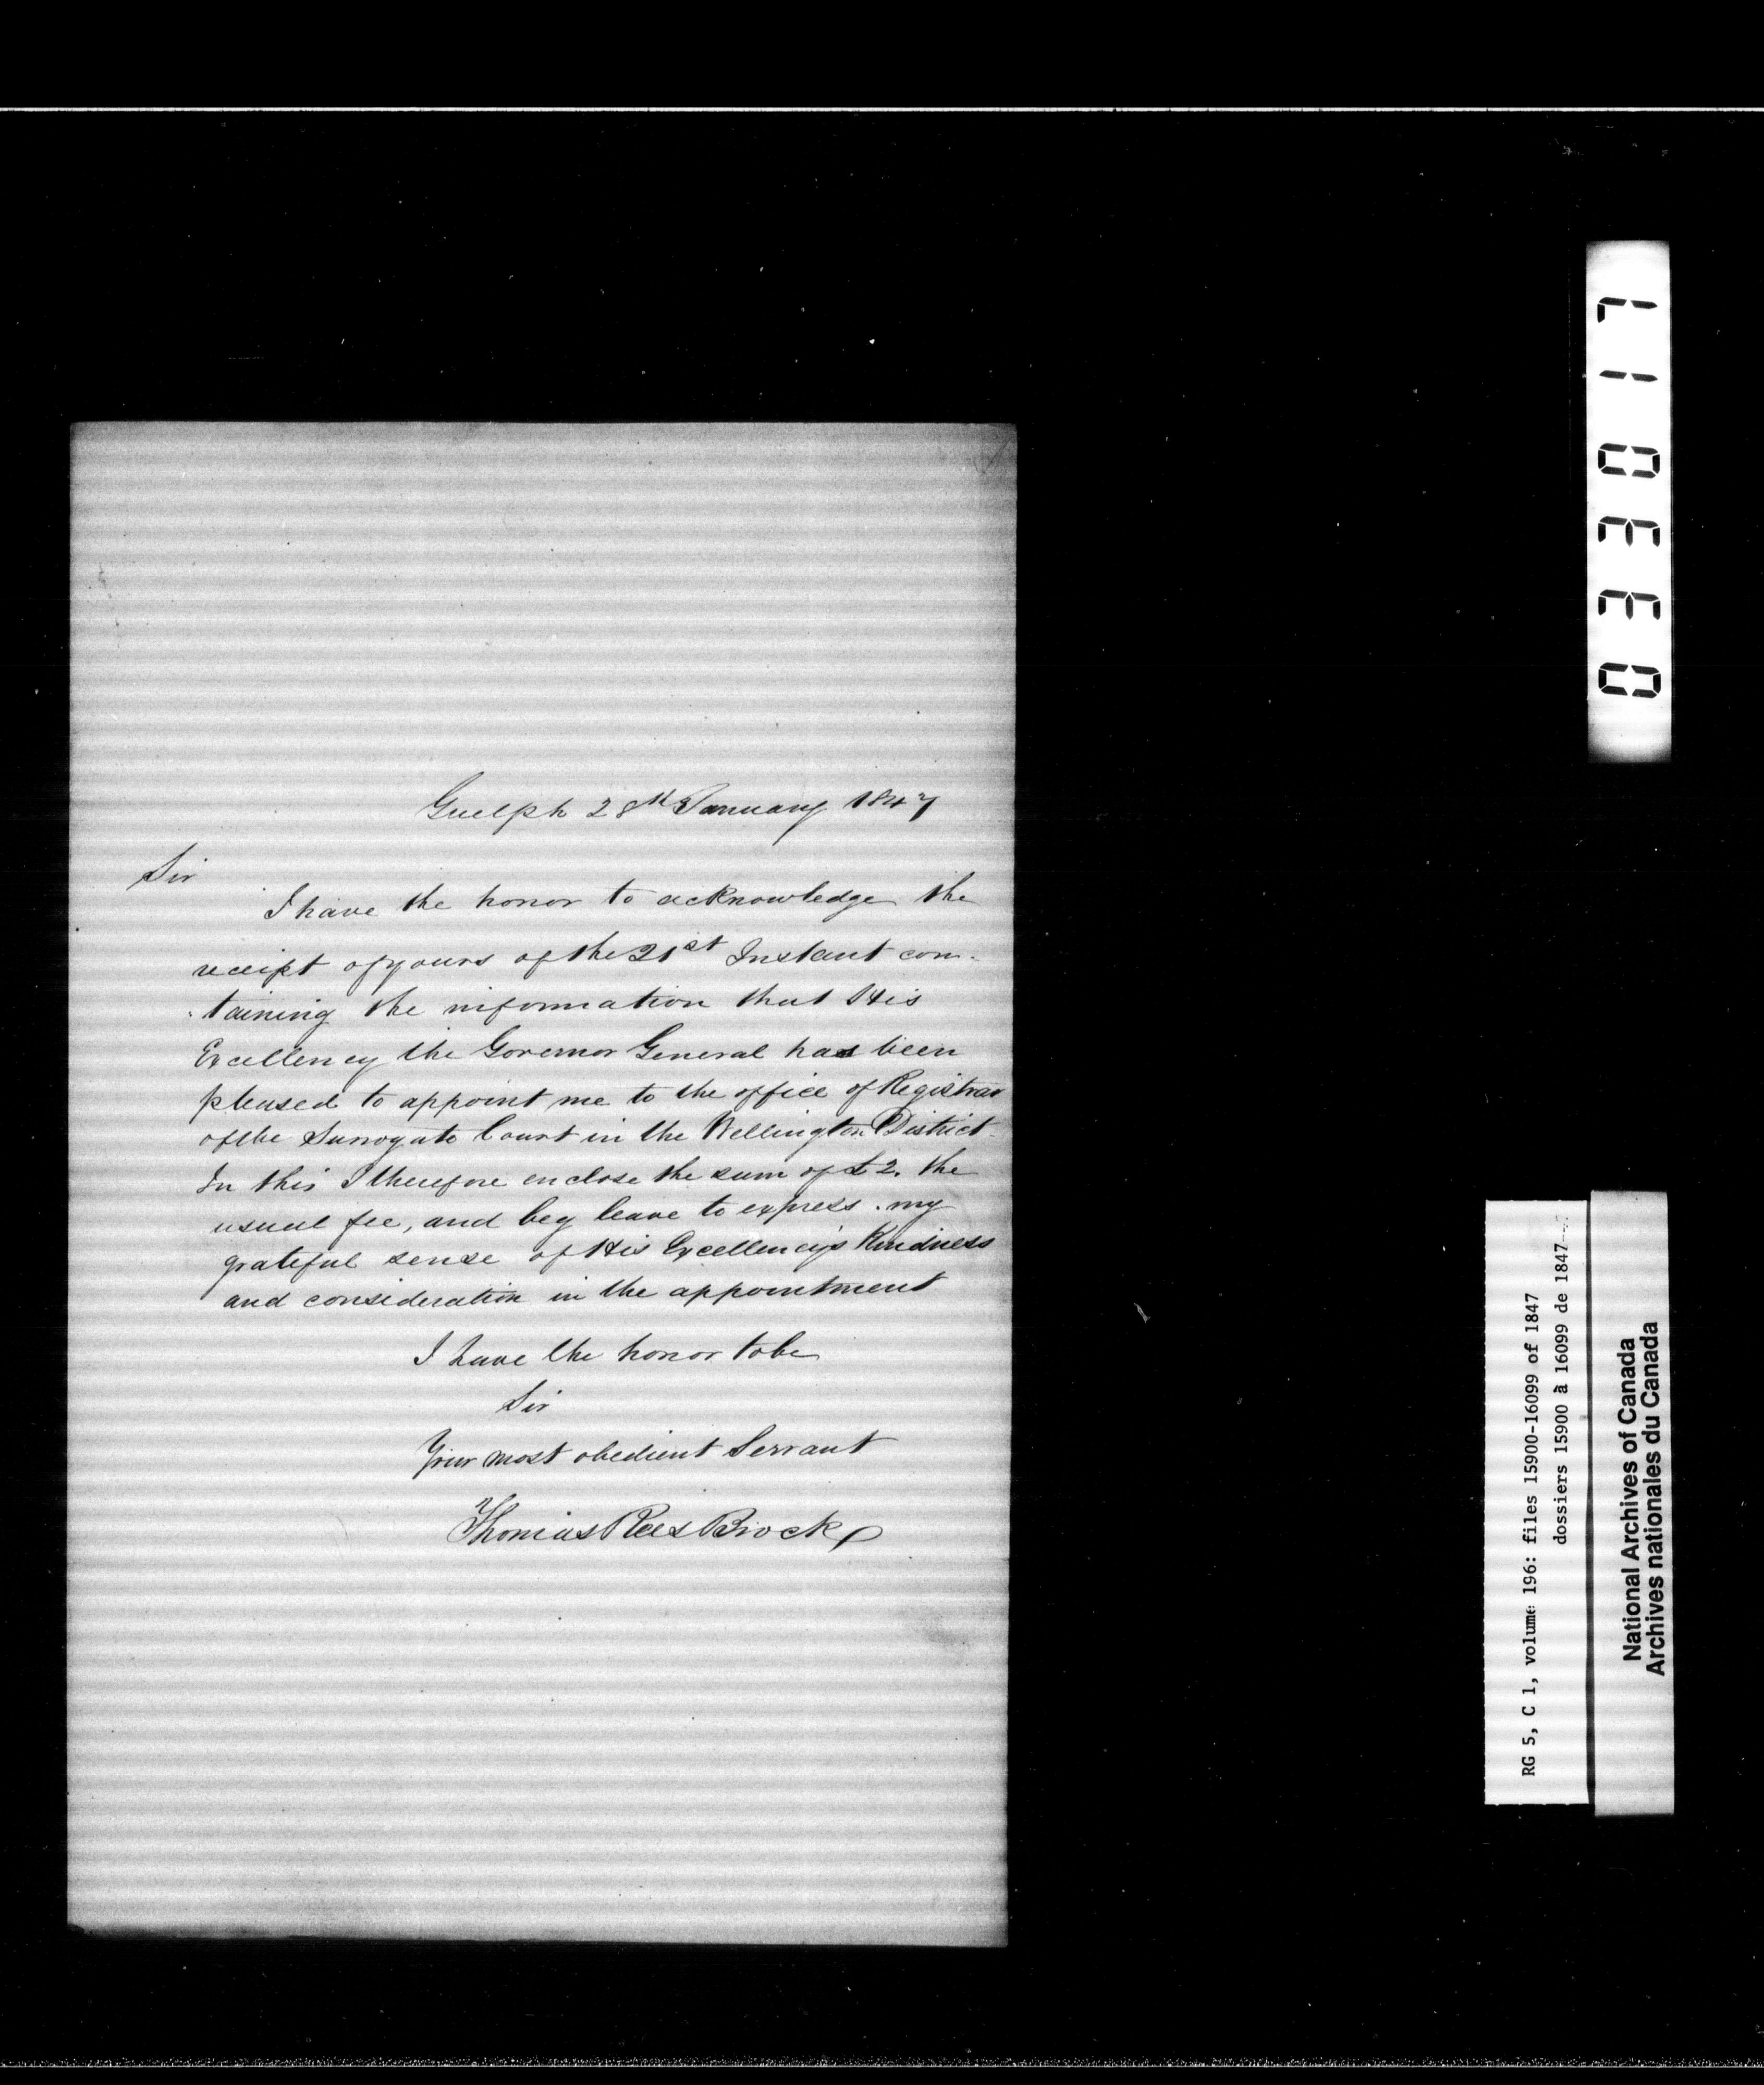 Guelph 28th January 1847
Sir
I have the honor to acknowledge the
receipt of yours of the 21st Instant con-
-taining the information that His
Excellency the Governor General has been
pleased to appoint me to the office of Registrar
of the Surrogate Court in the Wellington District
In this I therefore enclose the sum of £2. the
usual fee, and beg leave to express my
grateful sense of His Excellency's Kindness
and consideration in the appointment
I have the honor to be
Sir
Your most obedient Servant
Thomas Rees Brock
033017
RG 5, C 1, volume 196: files 15900-16099 of 1847
dossiers 15900 à 16099 de 1847
National Archives of Canada
Archives nationales du Canada